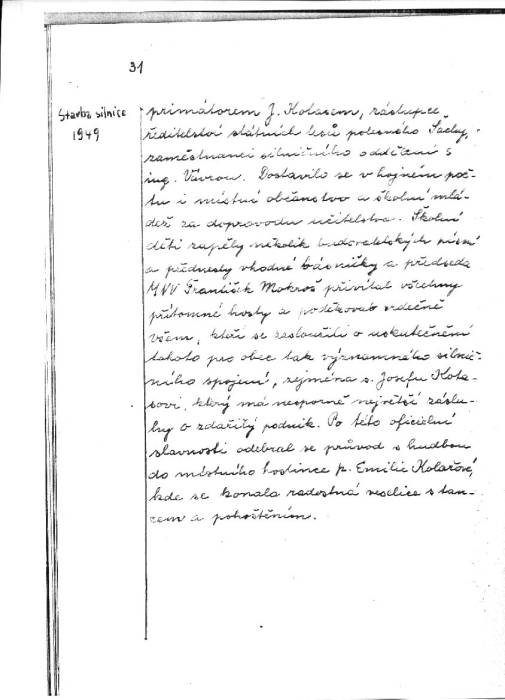 31
Stavba silnice
1949
primátorem J. Kotasem, zástupce
ředitelství státních lesů polesného Pachy,
zaměstnanci silničního oddělení s
ing. Vávrou. Dostavilo se v hojném poč-
tu i místní občanstvo a školní mlá-
dež za doprovodu učitelstva. Školní
děti zapěly několik budovatelských písní
a přednesly vhodné básničky a předseda
MNV František Mokroš přivítal všechny
přítomné hosty a poděkoval srdečně
všem, kteří se zasloužili o uskutečnění
tohoto pro obec tak významného silnič-
ního spojení, zejména s. Josefu Kota-
sovi, který má nesporně největší záslu-
hy o zdařilý podnik. Po této oficielní
slavnosti odebral se průvod s hudbou
do místního hostince p. Emilie Kolářové,
kde se konala radostná veselice s tan-
cem a pohoštěním.